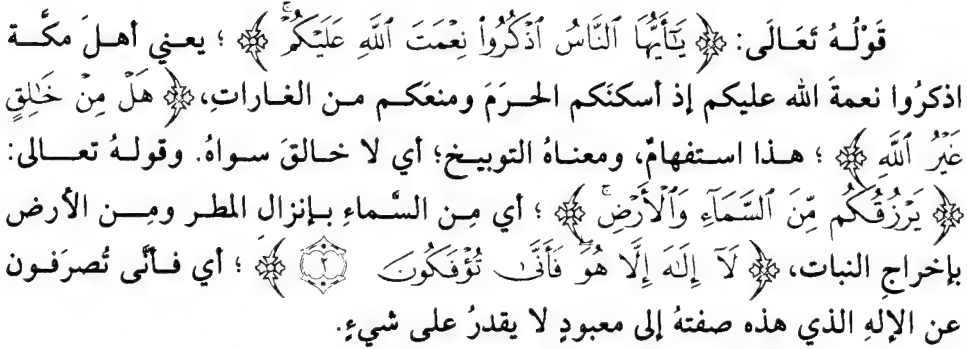 قَوْلُـهُ تَعَـالَى: ﴿ يَـٰٓأَيُّهَا ٱلنَّاسُ ٱذْكُرُوا۟ نِعْمَتَ ٱللَّهِ عَلَيْكُمْ ۚ ﴾ ؛ يعني أهـلَ مكَّـة
اذكرُوا نعمةَ الله عليكم إذ أسكنَكم الحـرَمَ ومنعَكـم مـن الغـاراتِ، ﴿ هَلْ مِنْ خَـٰلِقٍ
غَيْرُ ٱللَّهِ ﴾ ؛ هـذا اسـتفهامٌ، ومعنـاهُ التوبيـخ؛ أي لا خـالقَ سـواهُ. وقولـهُ تعـــالى:
﴿ يَرْزُقُكُم مِّنَ ٱلسَّمَآءِ وَٱلْأَرْضِ ۚ ﴾ ؛ أي مِـن السَّماءِ بـإنزالِ المطـر ومِــن الأرض
بإخراجِ النبات، ﴿ لَآ إِلَـٰهَ إِلَّا هُوَ ۖ فَأَنَّىٰ تُؤْفَكُونَ ٣ ﴾ ؛ أي فـأنَّى تُصرَفـون
عن الإلهِ الذي هذه صفتهُ إلى معبودٍ لا يقدرُ على شيءٍ.